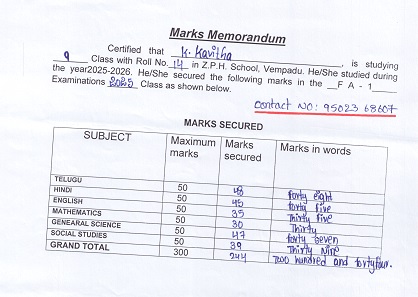 Marks Memorandum
Certified that K. Kavitha, is studying
9 Class with Roll No. 14 in Z.P.H. School, Vempadu. He/She studied during
the year2025-2026. He/She secured the following marks in the __F A - 1____
Examinations 2025 Class as shown below.
Contact NO: 95023 68607
MARKS SECURED
SUBJECT Maximum marks Marks secured Marks in words
TELUGU 50 48 forty eight
HINDI 50 45 forty five
ENGLISH 50 35 Thirty five
MATHEMATICS 50 30 Thirty
GENEARAL SCIENCE 50 47 forty seven
SOCIAL STUDIES 50 39 Thirty Nine
GRAND TOTAL 300 244 Two hundred and fortyfour.